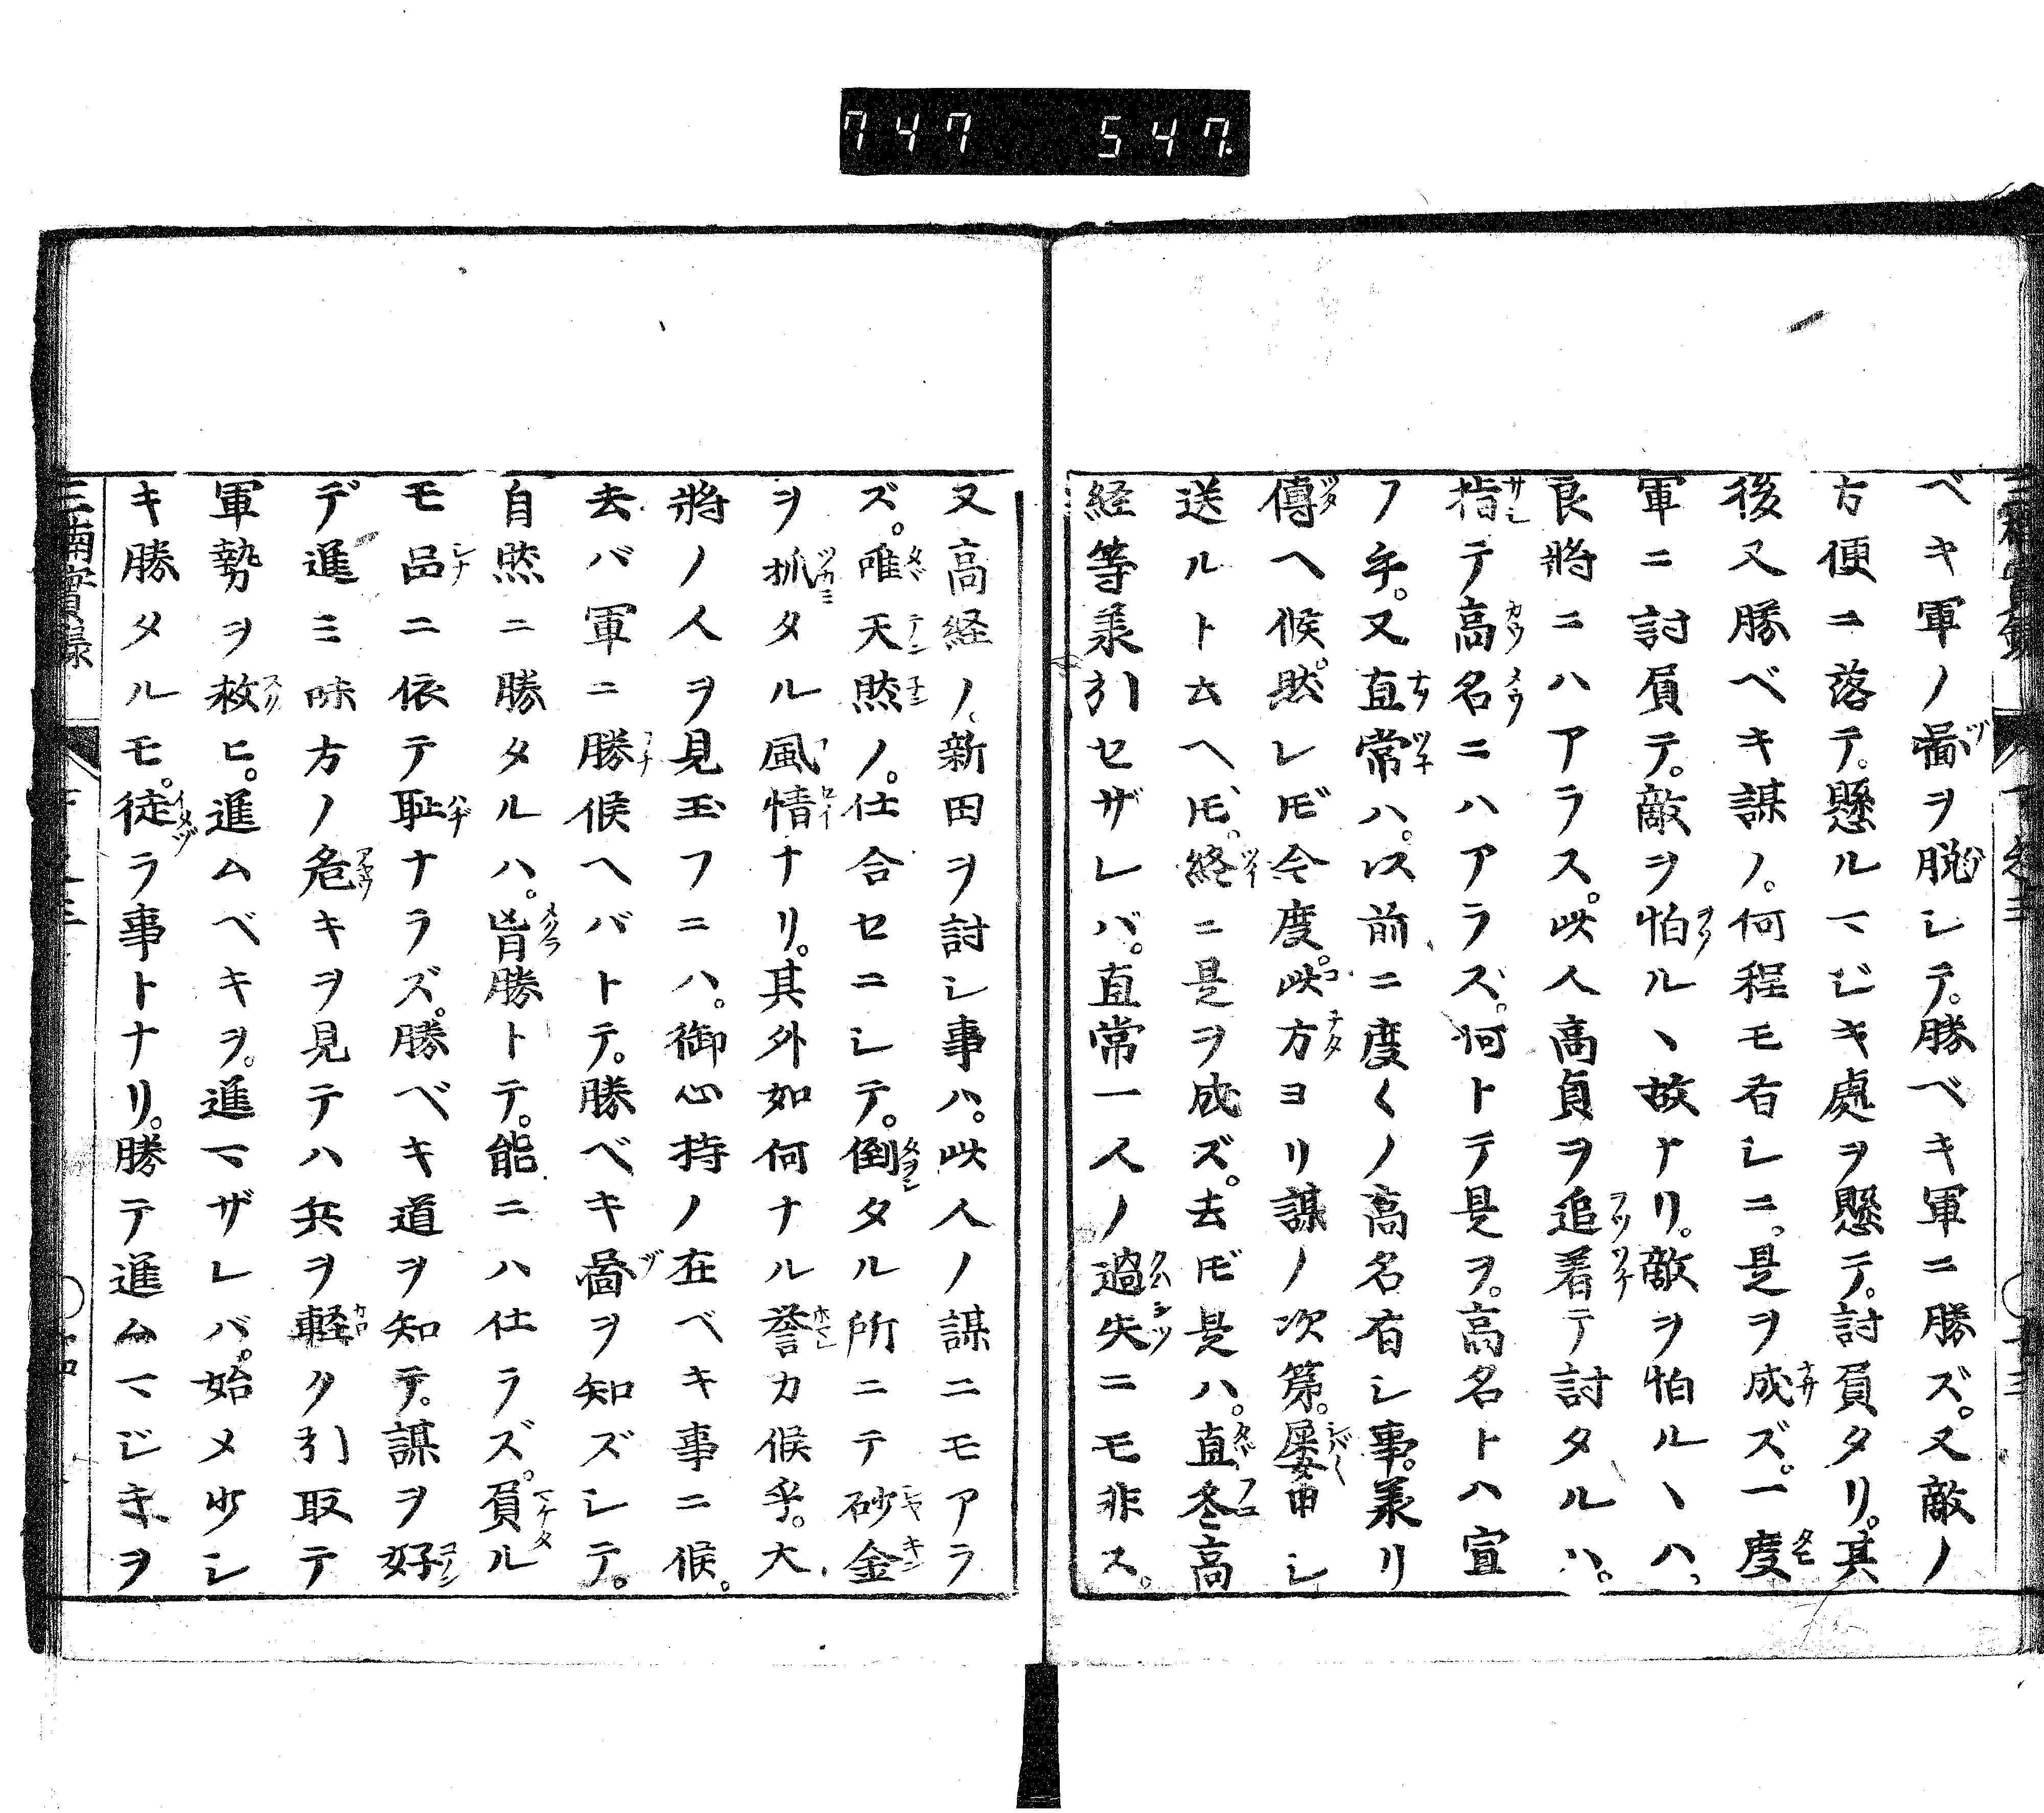 747 547.
ベキ軍ノ啚ヲ脱シテ。勝ベキ軍ニ勝ズ。又敵ノ
方便ニ落テ。懸ルマジキ處ヲ懸テ。討負タリ。其
後又勝ベキ謀ノ。何程モ有シニ。是ヲ成ズ。一度
軍ニ討負テ。敵ヲ怕ル丶故ナリ。敵ヲ怕ル丶ハ。
良將ニハアラス。此人高貞ヲ追着テ討タルハ。
指テ高名ニハアラズ。何トテ是ヲ。高名トハ宣
フ乎。又直常ハ。以前ニ度〱ノ高名有シ事。羕リ
傳ヘ候。然レ𪜈今度。此方ヨリ謀ノ次第。屢申シ
送ルト厶ヘ𪜈。終ニ是ヲ成ズ。去𪜈是ハ。直冬高
経等羕引セザレバ。直常一人ノ過失ニモ非ス。
又高経ノ。新田ヲ討シ事ハ。此人ノ謀ニモアラ
ズ。唯天然ノ。仕合セニシテ。倒タル所ニテ砂金
ヲ抓タル風情ナリ。其外如何ナル誉カ候乎。大
將ノ人ヲ見玉フニハ。御心持ノ在ベキ事ニ候。
去バ軍ニ勝候ヘバトテ。勝ベキ啚ヲ知ズシテ。
自然ニ勝タルハ。盲勝トテ。能ニハ仕ラズ。負ル
モ品ニ依テ恥ナラズ。勝ベキ道ヲ知テ。謀ヲ好
デ進ミ味方ノ危キヲ見テハ兵ヲ軽ク引取テ
軍勢ヲ救ヒ。進ムベキヲ。進マザレバ。始メ少シ
キ勝タルモ。徒ラ事トナリ。勝テ進ムマジキヲ